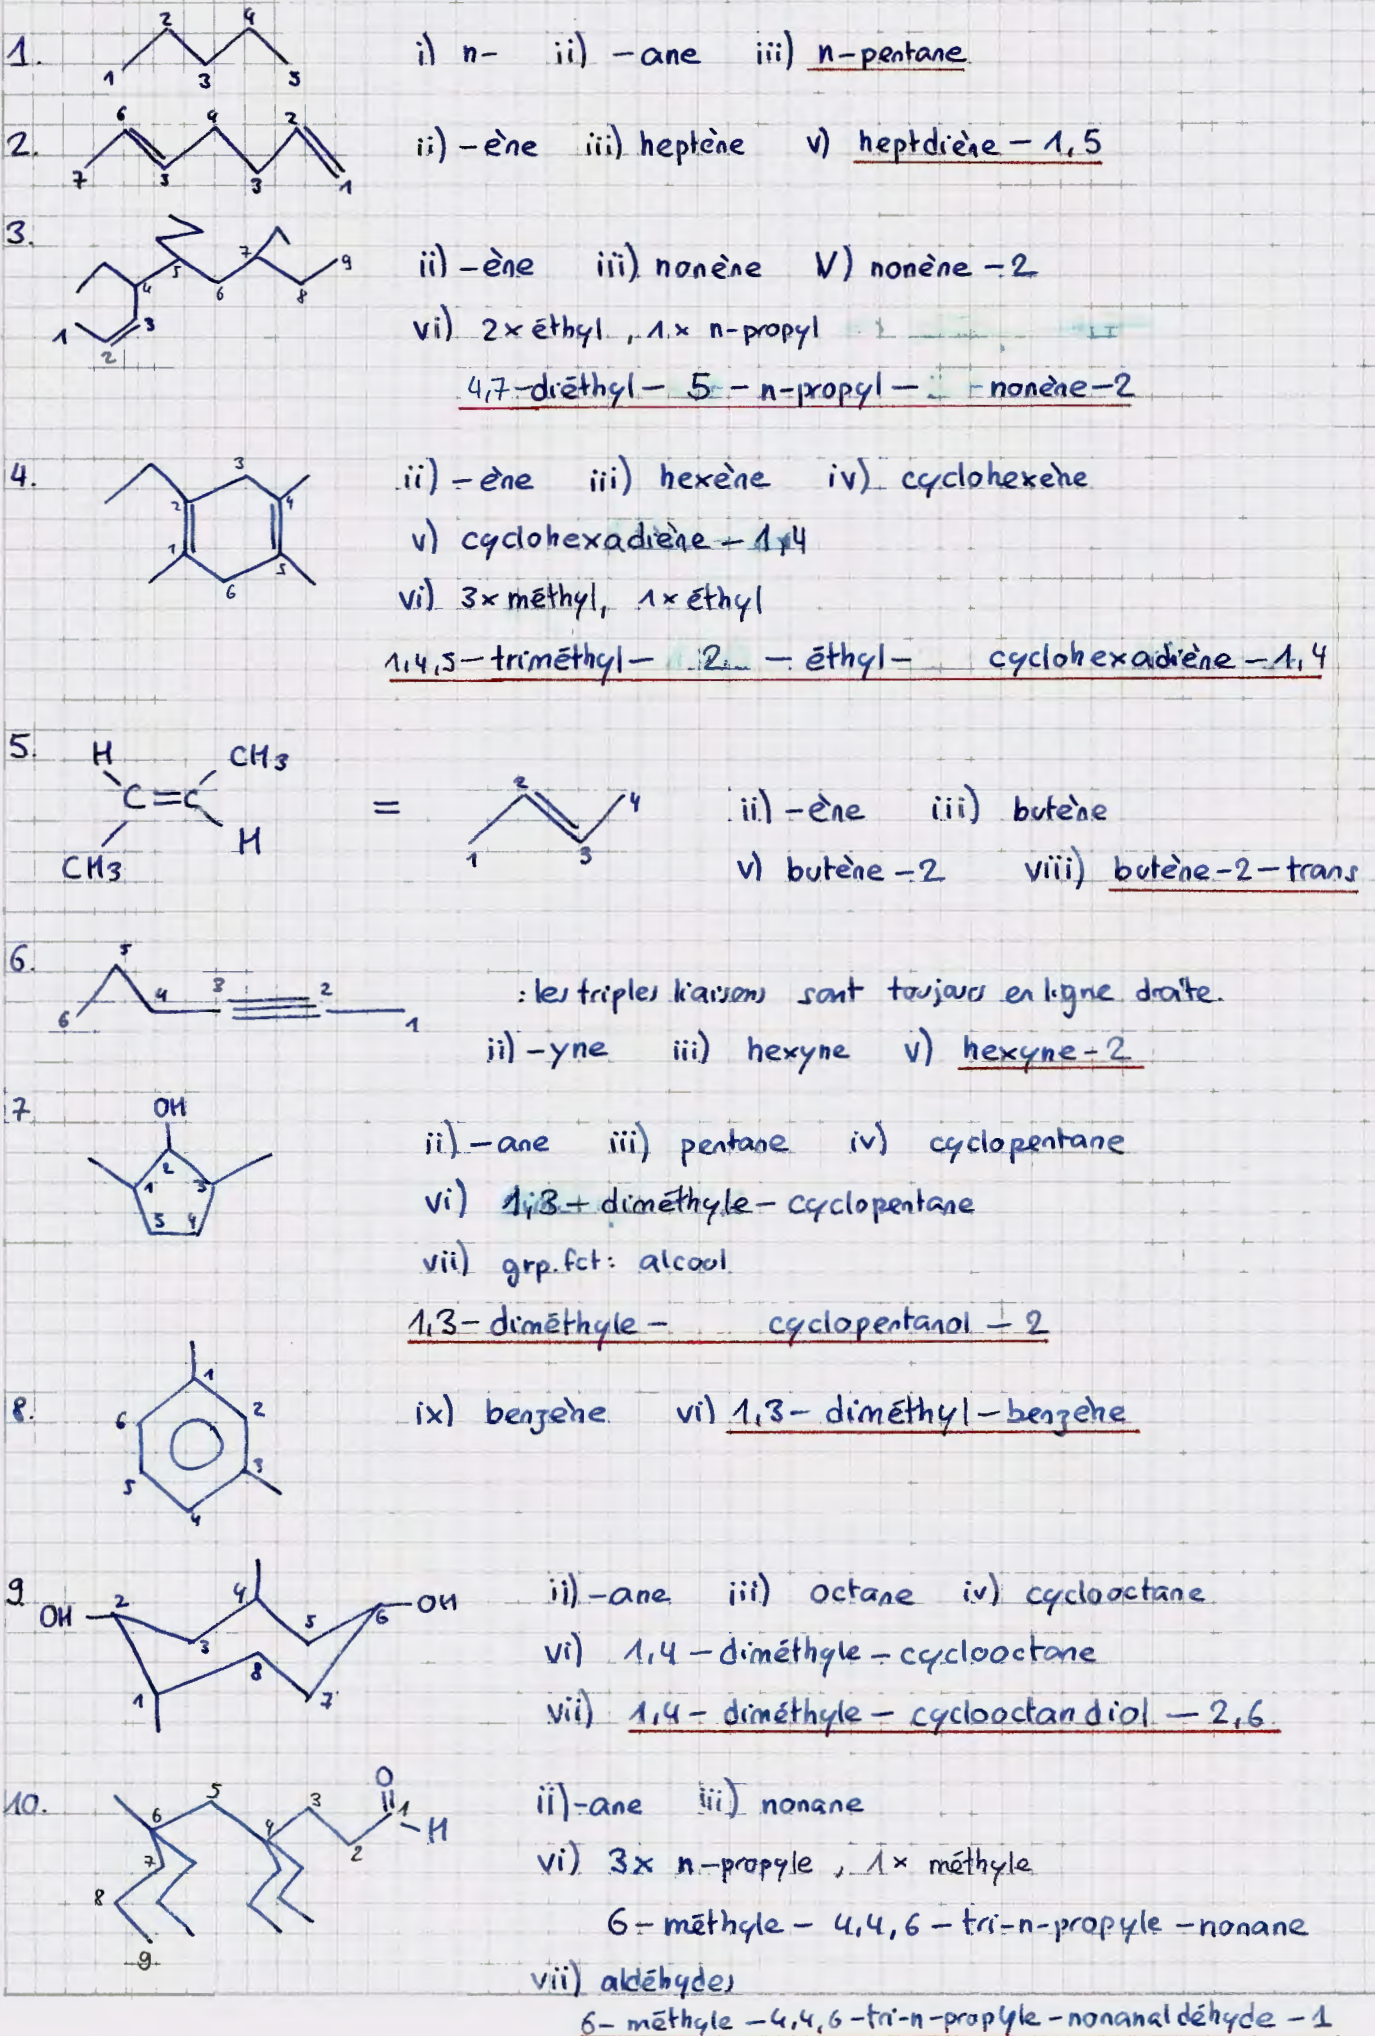 1. 1 2 3 4 5 i) n- ii) -ane iii) n-pentane
2. 7 6 5 4 3 2 1 ii) -ène iii) heptène v) heptdiène - 1,5
3. 1 2 3 4 5 6 7 8 9 ii) -ène iii) nonène V) nonène -2
vi) 2x éthyl, 1x n-propyl
4,7-diéthyl - 5 - n-propyl - - nonène-2
4. 1 2 3 4 5 6 ii) -ène iii) hexène iv) cyclohexène
v) cyclohexadiène - 1,4
vi) 3x méthyl, 1x éthyl
1,4,5-triméthyl- 2 - éthyl- cyclohexadiène -1,4
5. H CH3 C=C CH3 H = 1 2 3 4 ii) -ène iii) butène
v) butène -2 viii) butène-2-trans
6. 6 5 4 3 2 1 : les triples liaisons sont toujours en ligne droite.
ii) -yne iii) hexyne v) hexyne-2
7 OH 1 2 3 4 5 ii) -ane iii) pentane iv) cyclopentane
vi) 1,3 - diméthyle - cyclopentane
vii) grp.fct: alcool
1,3-diméthyle- cyclopentanol - 2
8. 1 2 3 4 5 6 ix) benzène vi) 1,3- diméthyl-benzène
9 OH 2 3 4 5 6 OH 1 8 7 ii) -ane iii) octane iv) cyclooctane
vi) 1,4 -diméthyle - cyclooctane
vii) 1,4- diméthyle - cyclooctan diol - 2,6
10. 6 5 4 3 2 1 O H 7 8 9 ii)-ane iii) nonane
vi) 3x n-propyle, 1x méthyle
6- méthyle - 4,4,6 - tri-n-propyle -nonane
vii) aldéhydes
6- méthyle -4,4,6-tri-n-propyle -nonanaldéhyde -1